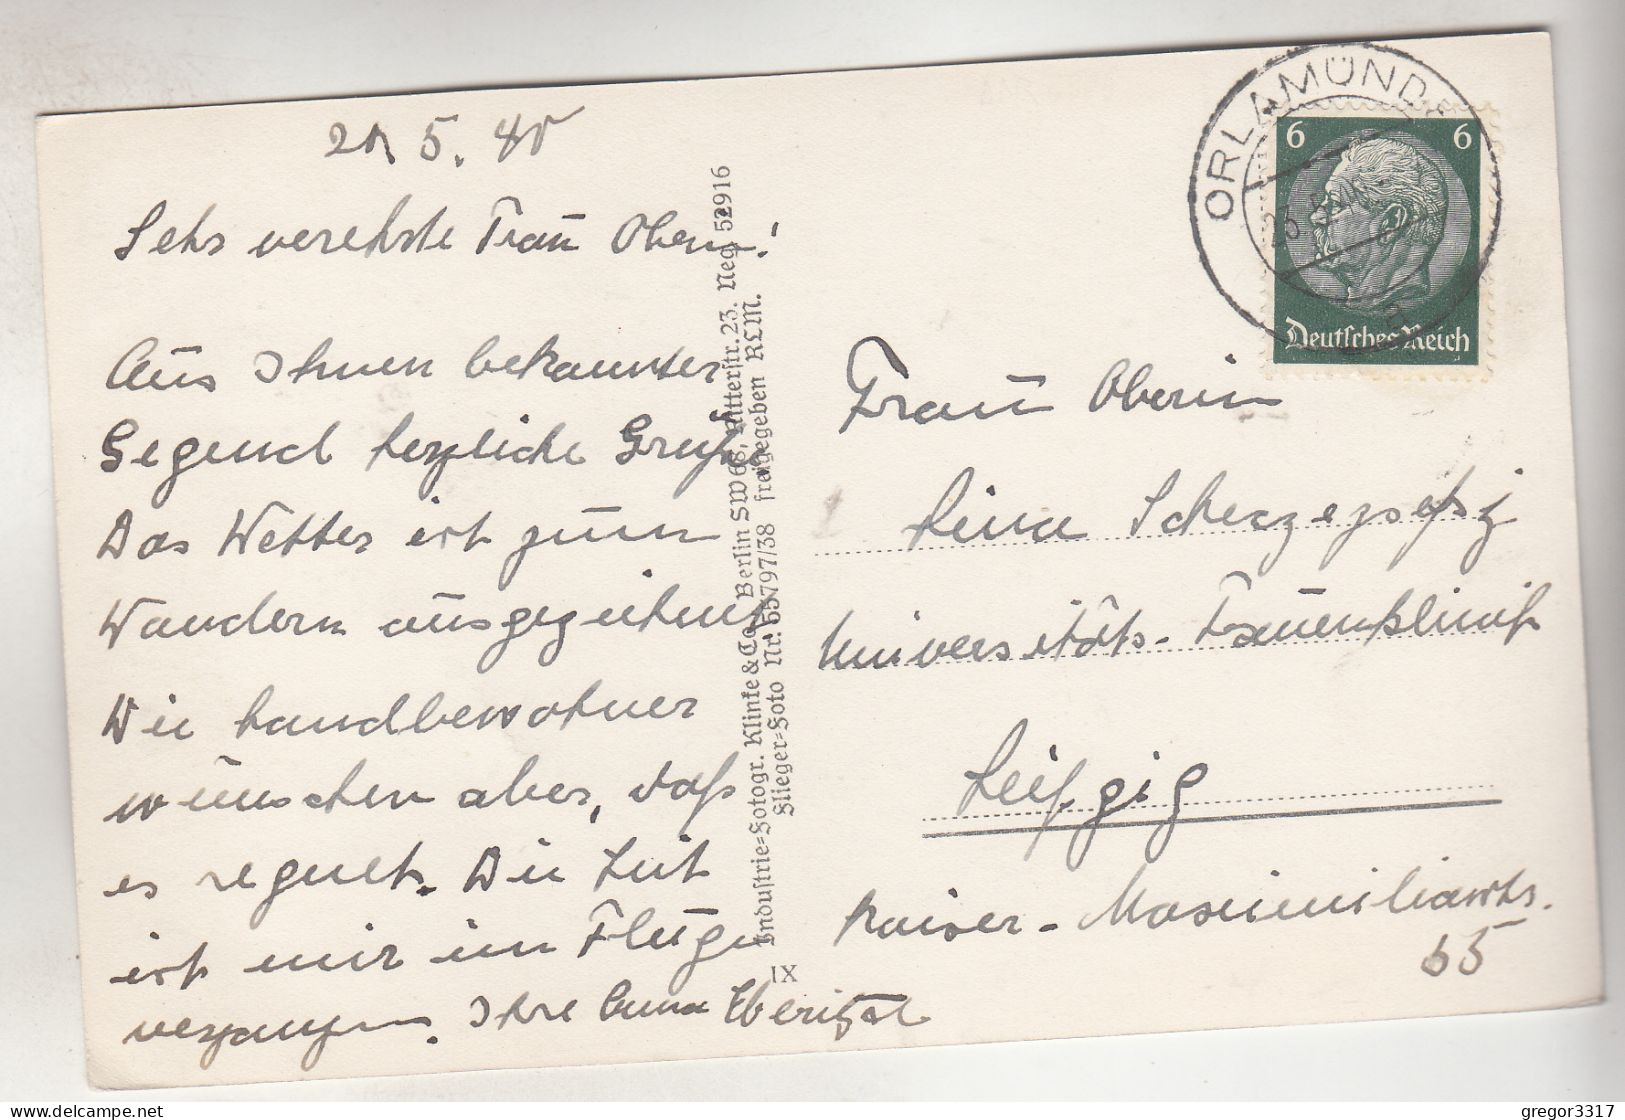 5. 40
Sehr verehrte Frau Oberin!
Aus Ihnen bekannter
Gegend herzliche Grüße
Das Wetter ist zum
Wandern ausgezeichnet
Wir Landbewohner
wünschen aber, daß
es regnet. Die Zeit
ist mir im Fluge
vergangen. Ihre Anna
Industrie=Fotogr. Klinke & Co., Berlin SW 68, Ritterstr. 23. Neg. 52916
Flieger=Foto Nr. 55797/38 freigegeben RLM.
IX
ORLAMÜNDE
23. 5.
6 6
Deutsches Reich
Frau Oberin
Lina
Universitäts-Frauenklinik
Leipzig
Kaiser-Maximilianstr.
55
gregor3317